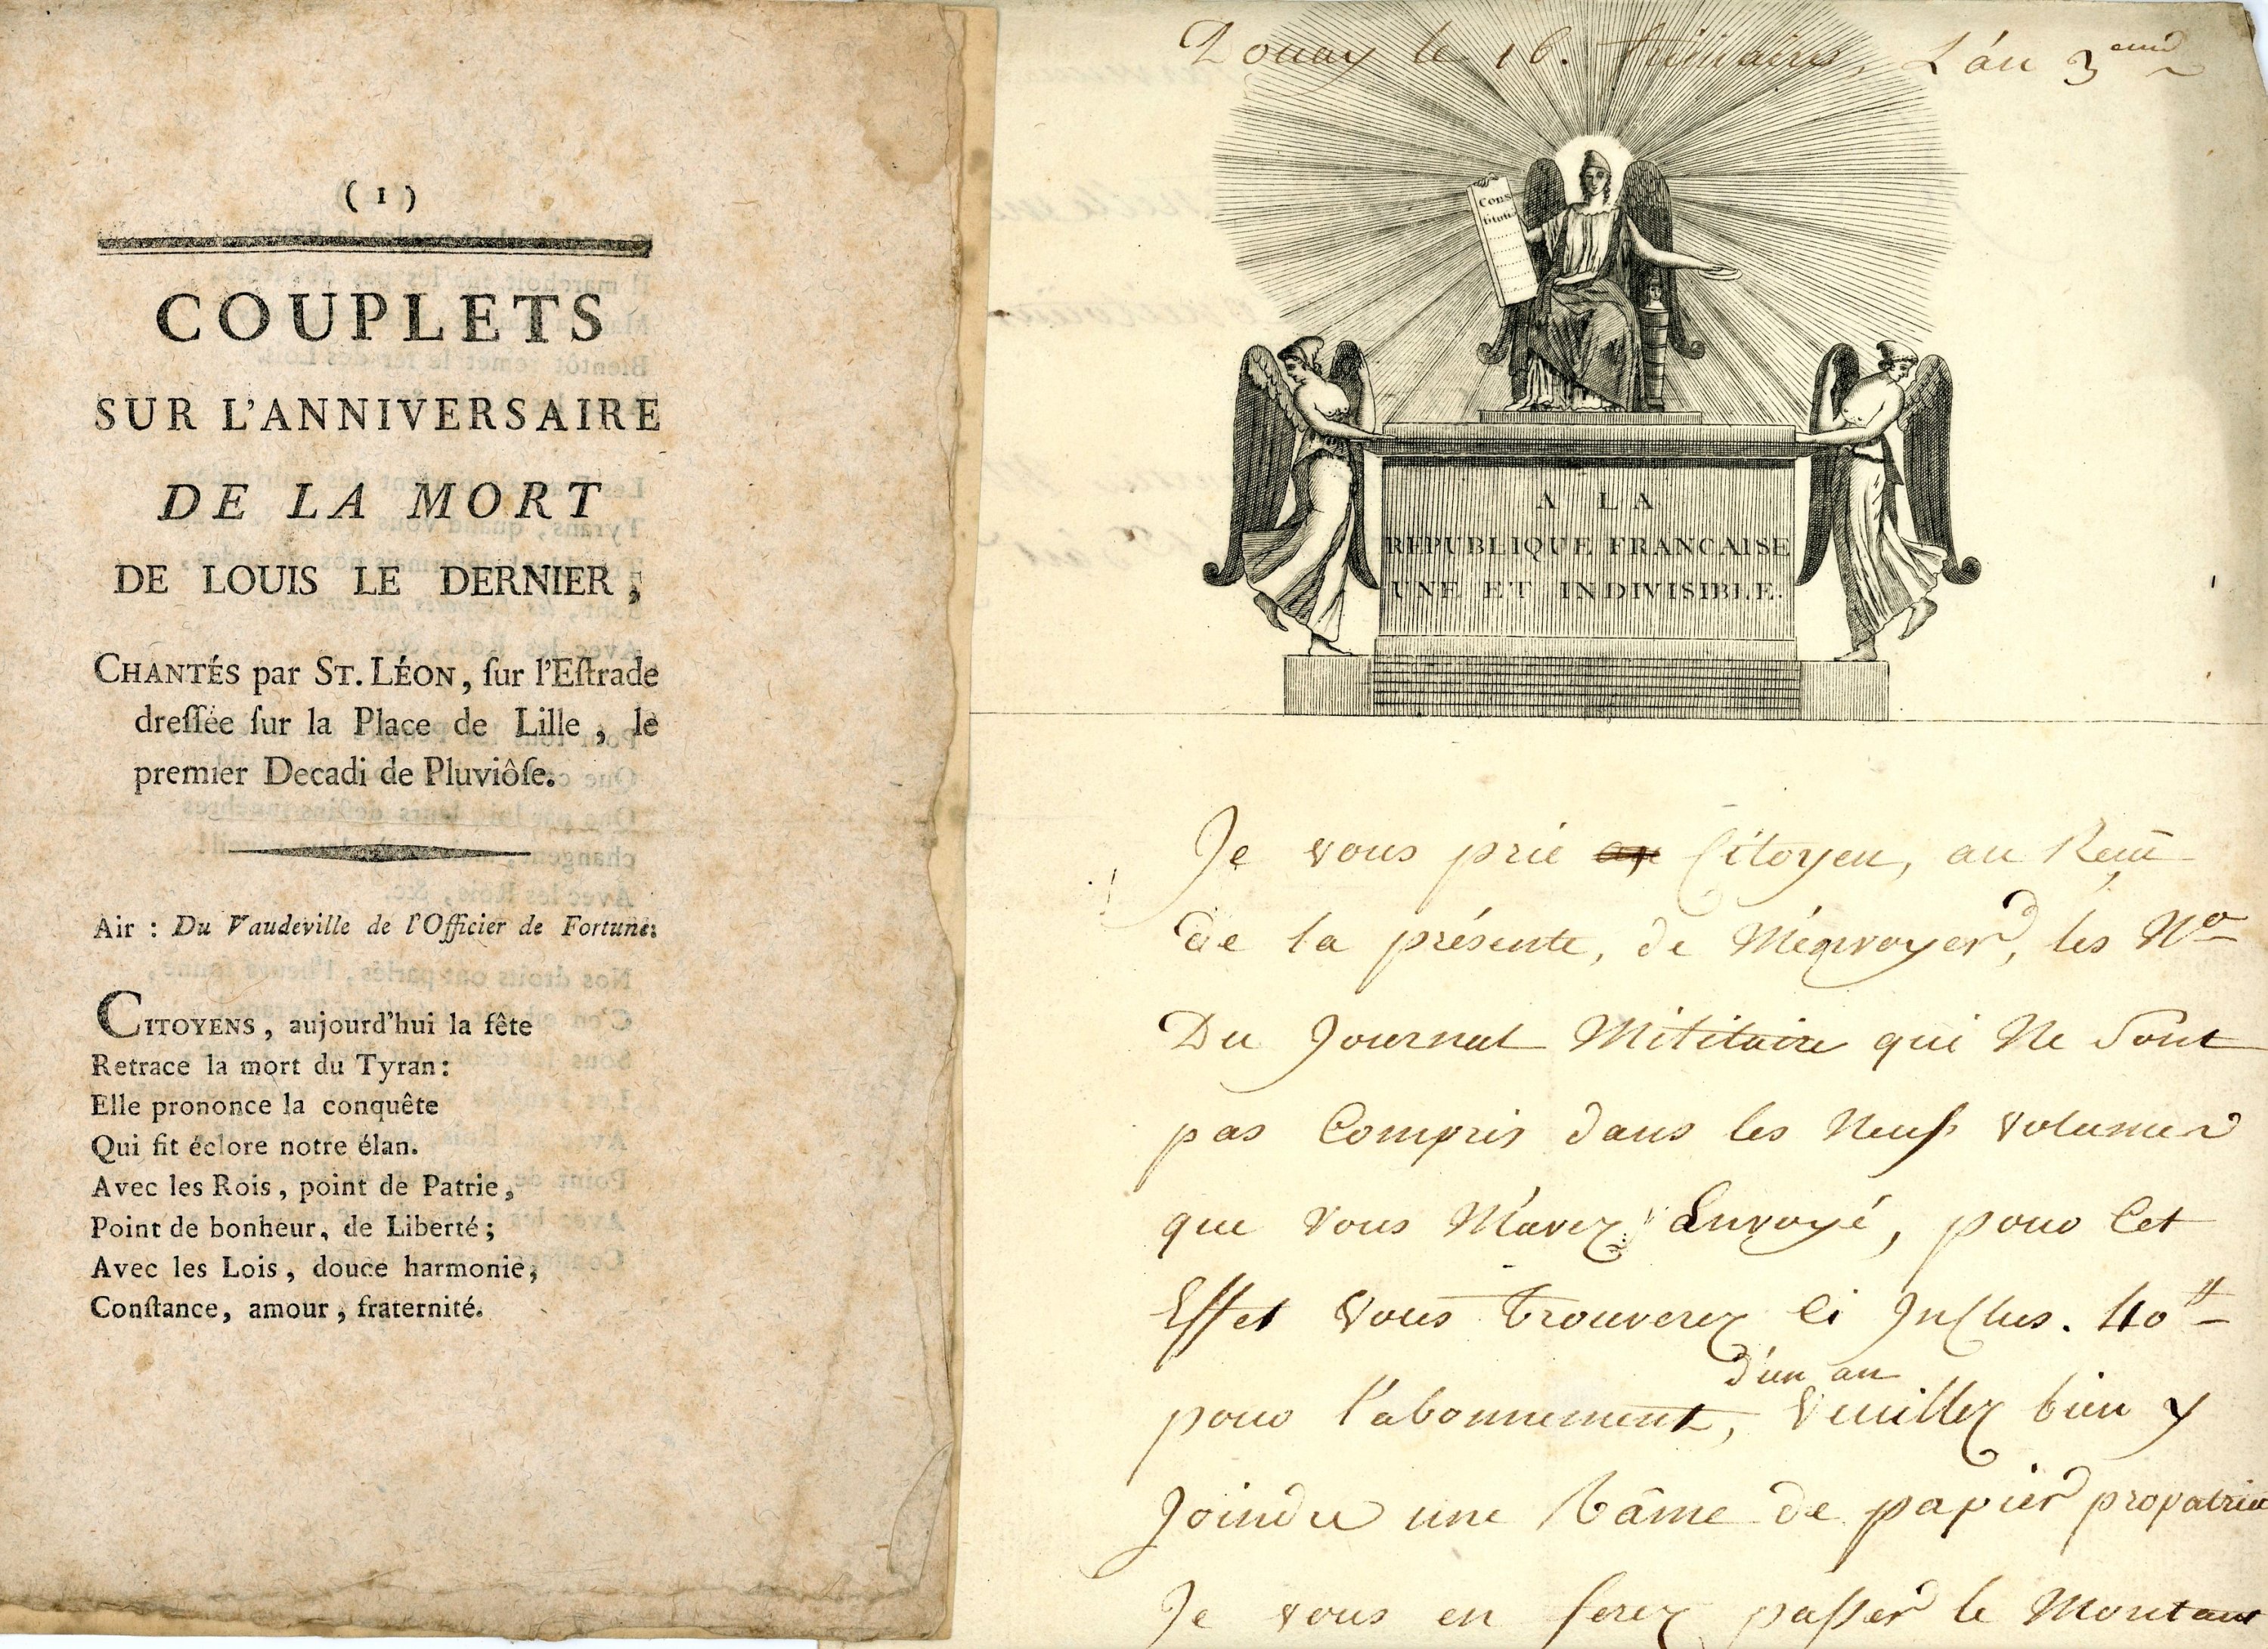 ( 1 )
COUPLETS
SUR L'ANNIVERSAIRE
DE LA MORT
DE LOUIS LE DERNIER ;
CHANTÉS par ST. LÉON, ſur l'Eſtrade
dreſſée ſur la Place de Lille, le
premier Decadi de Pluviôſe.
Air : Du Vaudeville de l'Officier de Fortune.
CITOYENS, aujourd'hui la fête
Retrace la mort du Tyran:
Elle prononce la conquête
Qui fit éclore notre élan.
Avec les Rois, point de Patrie,
Point de bonheur, de Liberté;
Avec les Lois, douce harmonie,
Conſtance, amour, fraternité.
Douay le 16. L'án 3
Constitutio
A LA
REPUBLIQUE FRANCAISE
UNE ET INDIVISIBLE.
Je vous prie Citoyen, au
de la présente, de M'énvoyer, les No
Du Journal Militaire qui Ne Sont
pas Compris dans les Neuf volumes
que vous M'avez Envoyé, pour Cet
Effet Vous trouverez Ci Inclus. 40
d'un an
pour l'abonnement, Veuillez bien y
Joindre une Râme de papier propatria
Je vous en ferez paſſer le Montant